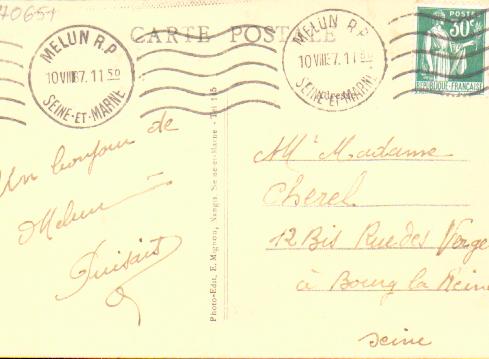 7065+
CARTE POSTALE
MELUN R.P.
10 VIII 37. 11 50
SEINE-ET-MARNE
MELUN R.P.
10 VIII 37. 11
SEINE-ET-MARNE
POSTES
30c
RÉPUBLIQUE-FRANÇAISE
Adresse
Un bonjour de
Melun
Photo-Edit. E. Mignon, Nangis, Seine-et-Marne - Tél 115
Mr Madame
Cherel
12 Bis Rue des Verge
à Bourg la Reine
Seine